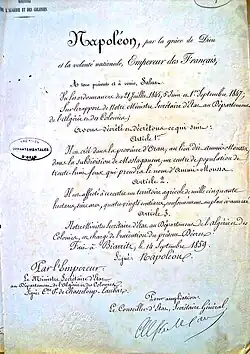 DE L'ALGÉRIE ET DES COLONIES
Napoléon, par la grâce de Dieu
et la volonté nationale, Empereur des Français,
A tous présents et à venir, Salut.
Vu les ordonnances des 21 Juillet 1845, 5 Juin et 1er Septembre 1847,
Sur le rapport de Notre Ministre Secrétaire d'Etat au Département
de l'Algérie et des Colonies;
Avons décrété et décrétons ce qui suit:
Article 1er
Il est créé dans la province d'Oran, au lieu dit, Ammi-Moussa,
dans la subdivision de Mostaganem, un centre de population de
trente-huit feux, qui prendra le nom d'Ammi-Moussa.
ARCHIVES
DÉPARTEMENTALES
D'ORAN
Article 2.
Il est affecté à ce centre un territoire agricole de mille cinquante
hectares, ares, quatre vingt centiares, conformément au plan ci-annexé.
Article 3.
Notre Ministre Secrétaire d'Etat au Département de l'Algérie et des
Colonies, est chargé de l'exécution du présent Décret.
Fait à Biarritz, le 14 Septembre 1859
Signé: Napoléon.
Par l'Empereur
Le Ministre Secrétaire d'Etat
au Département de l'Algérie et des Colonies
Signé: Cte P. de Chasseloup-Laubat
Pour ampliation:
Le Conseiller d'Etat, Secrétaire Général